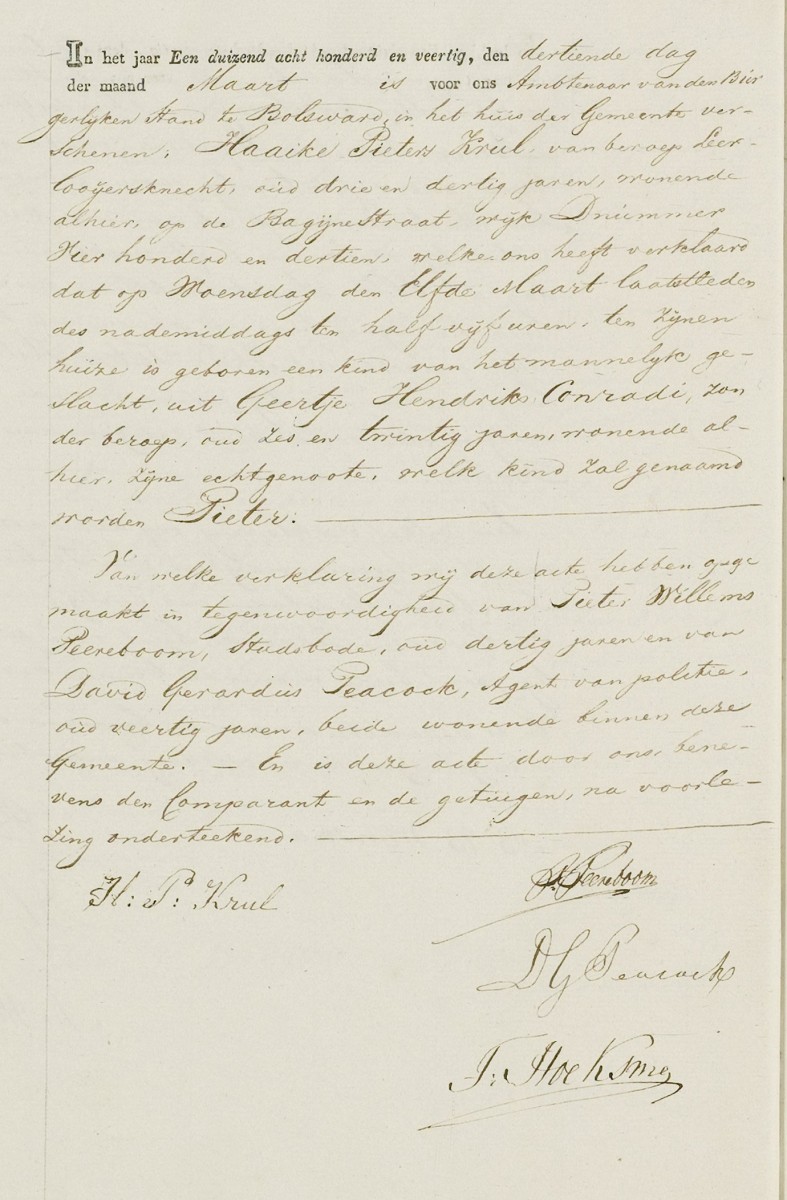 In het jaar Een duizend acht honderd en veertig, den dertiende dag
der maand Maart is voor ons Ambtenaar van den Bur
gerlyken Stand te Bolsward, in het huis der Gemeente ver-
schenen, Haaike Pieters Krul, van beroep Leer-
looyersknecht, oud drie en dertig jaren, wonende
alhier, op de Bagijnestraat, wyk D nummer
Vier honderd en dertien, welke ons heeft verklaard
dat op Woensdag den Elfde Maart laatstleden
des nademiddags ten half vyf uren, ten zynen
huize is geboren een kind van het mannelyk ge-
slacht, uit Geertje Hendriks Conradi, zon
der beroep, oud zes en twintig jaren, wonende al-
hier, zyne echtgenoote, welk kind zal genaamd
worden Pieter.
Van welke verklaring wij deze acte hebben opge
maakt in tegenwoordigheid van Pieter Willems
Peereboom, Stadsbode, oud dertig jaren en van
David Gerardus Peacock, Agent van politie,
oud veertig jaren, beide wonende binnen deze
Gemeente. — En is deze acte door ons, bene-
vens den Comparant en de getuigen, na voorle-
zing onderteekend.
H: P: Krul
P. Peereboom
D G Peacock
T. Hoeksma